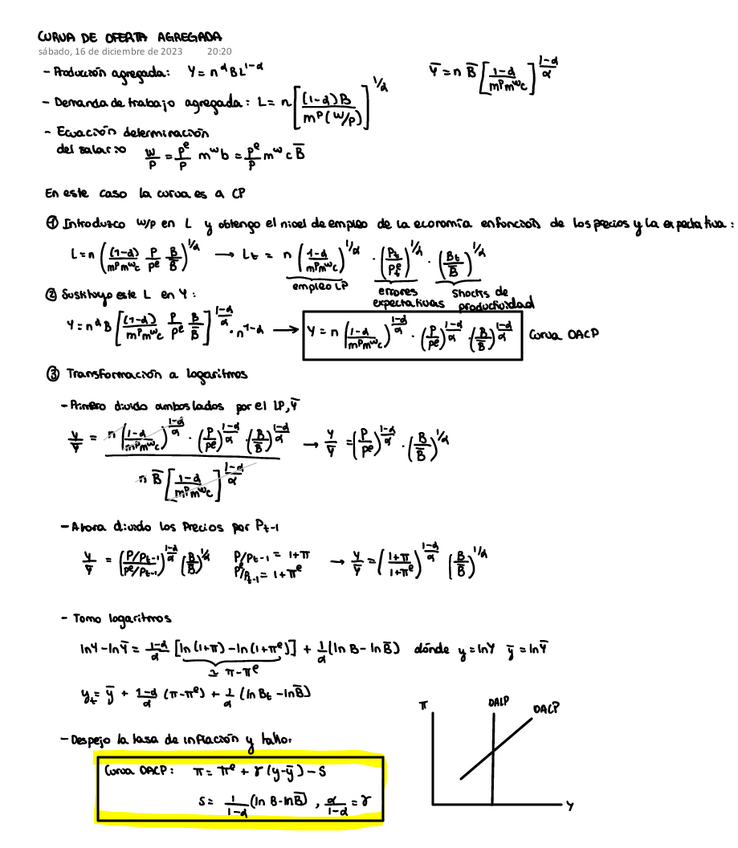 CURVA DE OFERTA AGREGADA
sábado, 16 de diciembre de 2023 20:20
- Producción agregada: Y = n^α B L^(1-α)
Ȳ = n B̄ [(1-α)/(m^p m^w c)]^((1-α)/α)
- Demanda de trabajo agregada: L = n [((1-α)B)/(m^p (W/P))]^(1/α)
- Ecuación determinación
del salario W/P = P^e/P m^w b = P^e/P m^w c B̄
En este caso la curva es a CP
① Introduzco W/P en L y obtengo el nivel de empleo de la economía en función de los precios y la expectativa:
L = n ((1-α)/(m^p m^w c) P/P^e B/B̄)^(1/α) → L_t = n ((1-α)/(m^p m^w c))^(1/α) · (P_t/P_t^e)^(1/α) · (B_t/B̄)^(1/α)
empleo LP errores expectativas Shocks de productividad
② Sustituyo este L en Y:
Y = n^α B [(1-α)/(m^p m^w c) P/P^e B/B̄]^((1-α)/α) · n^(1-α) → Y = n ((1-α)/(m^p m^w c))^((1-α)/α) · (P/P^e)^((1-α)/α) · (B/B̄)^((1-α)/α) Curva OACP
③ Transformación a logaritmos
- Primero divido ambos lados por el LP, Ȳ
Y/Ȳ = n ((1-α)/(m^p m^w c))^((1-α)/α) · (P/P^e)^((1-α)/α) · (B/B̄)^((1-α)/α) / n B̄ [(1-α)/(m^p m^w c)]^((1-α)/α) → Y/Ȳ = (P/P^e)^((1-α)/α) · (B/B̄)^(1/α)
- Ahora divido los Precios por P_t-1
Y/Ȳ = ((P/P_t-1)/(P^e/P_t-1))^((1-α)/α) (B/B̄)^(1/α) P/P_t-1 = 1+π → Y/Ȳ = ((1+π)/(1+π^e))^((1-α)/α) (B/B̄)^(1/α)
P^e/P_t-1 = 1+π^e
- Tomo logaritmos
lnY - lnȲ = (1-α)/α [ln(1+π) - ln(1+π^e)] + 1/α (ln B - ln B̄) dónde y = lnY ȳ = lnȲ
≃ π - π^e
y_t = ȳ + (1-α)/α (π - π^e) + 1/α (ln B_t - ln B̄)
- Despejo la tasa de inflación y hallo:
Curva OACP: π = π^e + γ(y - ȳ) - s
s = 1/(1-α) (ln B - ln B̄), α/(1-α) = γ
π OALP OACP
Y